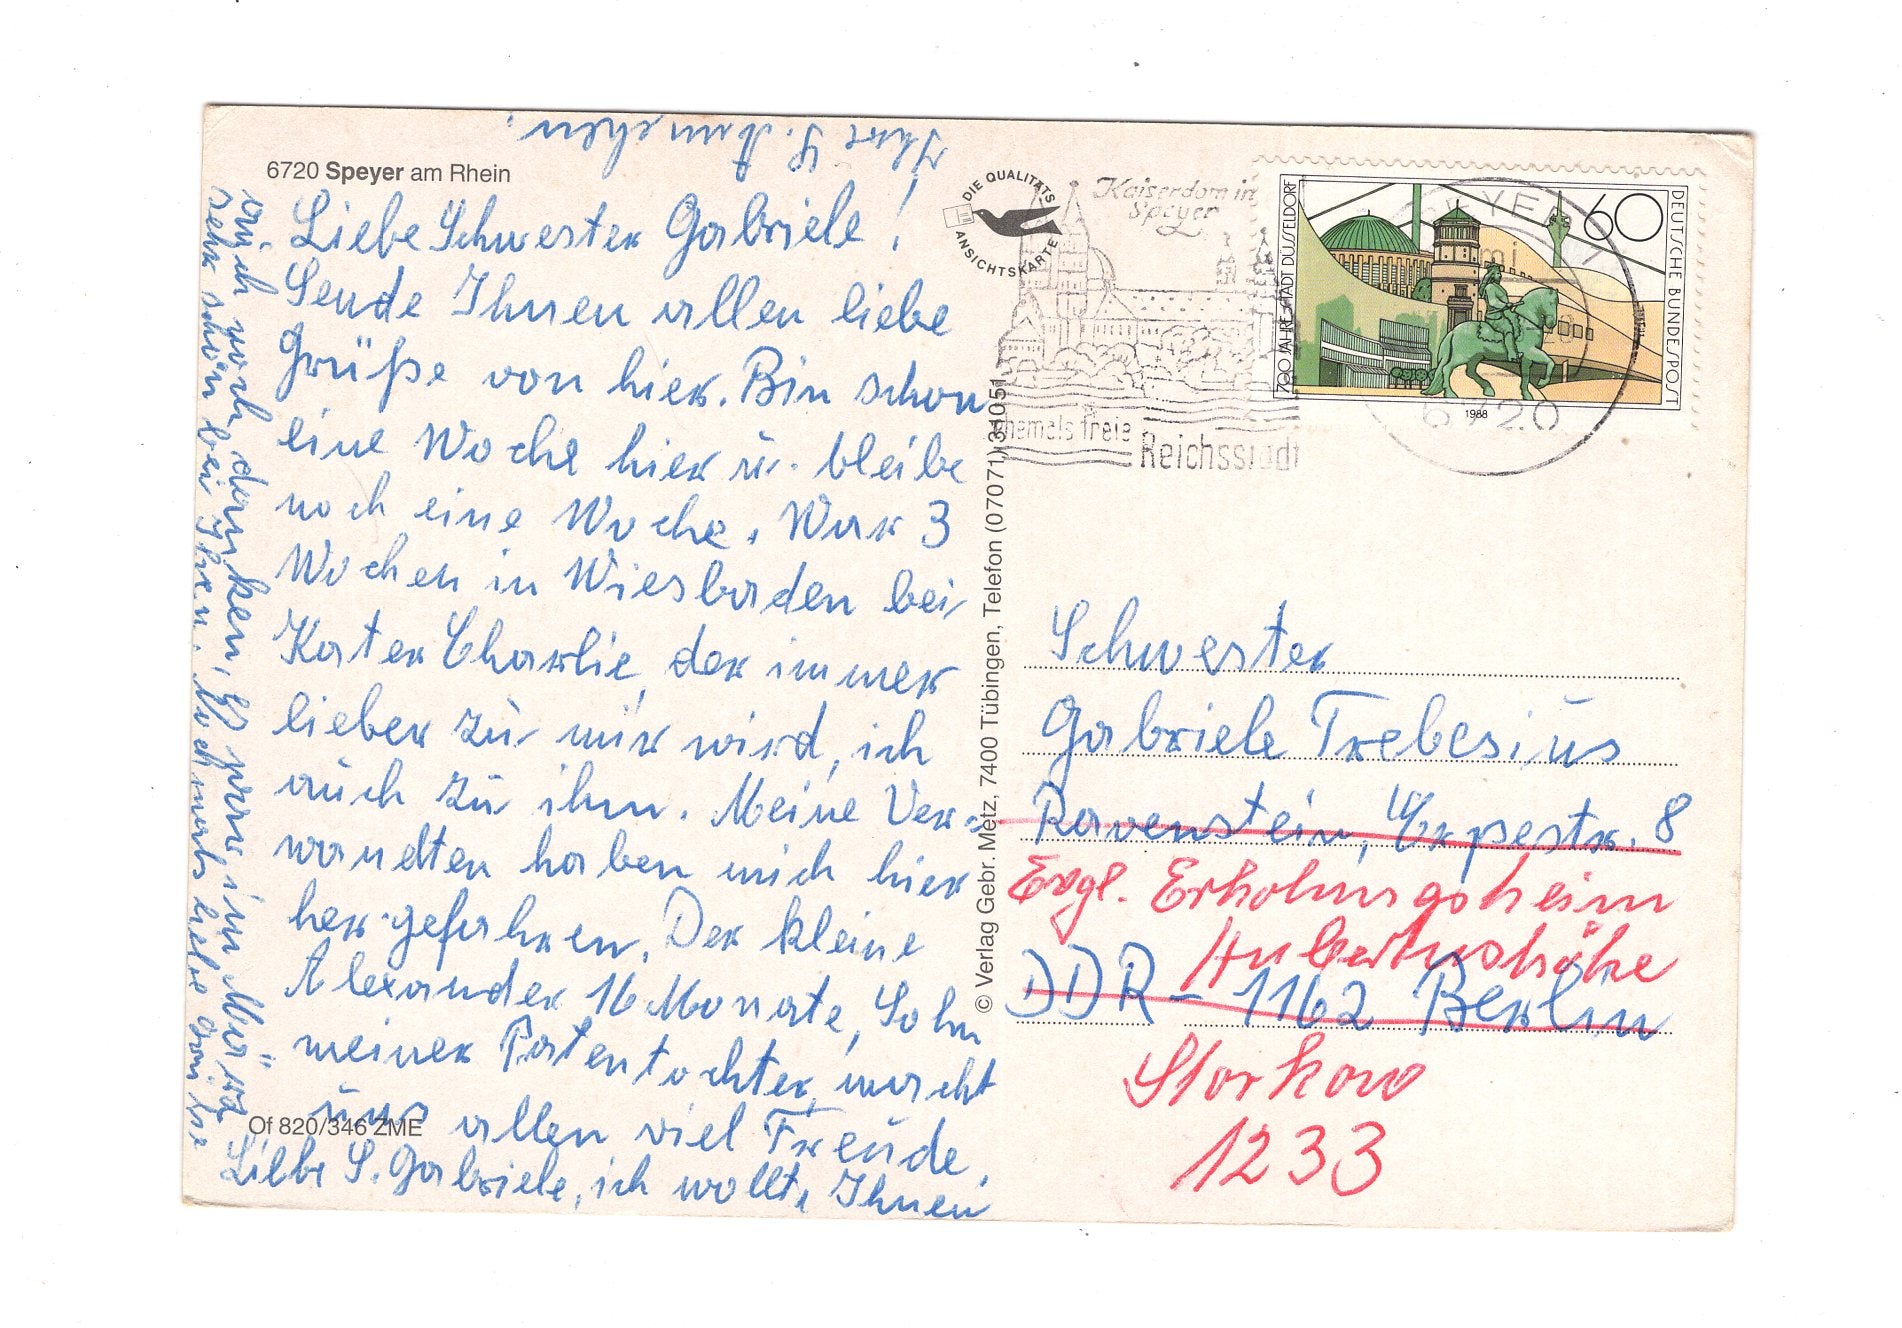 6720 Speyer am Rhein
Liebe Schwester Gabriele!
Sende Ihnen allen liebe
Grüße von hier. Bin schon
eine Woche hier u. bleibe
noch eine Woche. War 3
Wochen in Wiesbaden bei
Kater Charlie, der immer
lieber zu mir wird, ich
auch zu ihm. Meine Ver-
wandten haben mich hier
her gefahren. Der kleine
Alexander 16 Monate, Sohn
meiner Patentochter, macht
uns allen viel Freude.
Liebe S. Gabriele, ich wollte Ihnen
auch noch danken, es war im Mai
sehr schön bei Ihnen. Nochmals liebe Grüße
Ihre S.
Of 820/346 ZME
DIE QUALITÄTS
ANSICHTSKARTE
© Verlag Gebr. Metz, 7400 Tübingen, Telefon (07071) 31051
Kaiserdom in
Speyer
ehemals freie
Reichsstadt
SPEYER 1
6720
700 JAHRE STADT DÜSSELDORF
60
DEUTSCHE BUNDESPOST
1988
Schwester
Gabriele Trebesius
Ravenstein, Erpestr. 8
Evgl. Erholungsheim
Hubertushöhe
DDR - 1162 Berlin
Storkow
1233